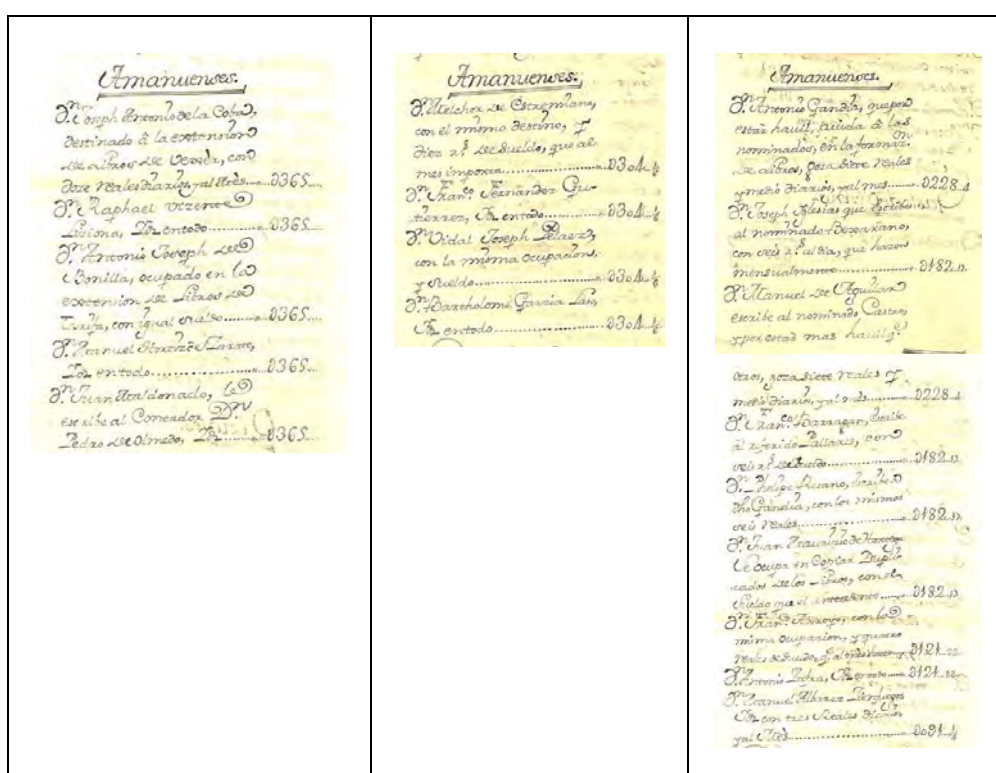 Amanuenses.
Dn. Joseph Antonio de la Cobа,
destinado à la extension
de Libros de Vereda, con
doze reales diarios, y al mes 0365
Dn. Raphael Vizente
Liziona, Idn. en todo 0365
Dn. Antonio Joseph de
Bonilla, ocupado en la
extension de Libros de
Tarifa, con igual sueldo 0365
Dn. Manuel de Zarate,
Idn. en todo 0365
Dn. Juan Maldonado,
escribe al Contador Dn.
Pedro de Olmedo, Idn. 0365
Amanuenses.
Dn. Melchor de Estremiana,
con el mismo destino, y
diez rs. de sueldo, que al
mes importa 0304
Dn. Franco. Fernandez Gu-
tierrez, Idn. en todo 0304
Dn. Vidal Joseph Pelaez,
con la misma ocupacion,
y sueldo 0304
Dn. Bartholomè Garcia
Idn. en todo 0304
Amanuenses.
Dn. Antonio Gandia, que por
estàr havil, aiuda à los
nominados, en la formaz.on
de Libros, goza siete reales
y medio diarios, y al mes 0228
Dn. Joseph Yglesias que escribe
al nominado
con seis rs. al dia, que hazen
mensualmente 0182
Dn. Manuel de Aguilar
escribe al nominado Castro,
y por estàr mas havil q.e
otros, goza siete reales y
medio diarios, y al mes 0228
Dn. Franco. Barragan, escribe
al referido Pallares, con
seis rs. de sueldo 0182
Dn. Phelipe Ruano, escribe à
dho Gandia, con los mismos
seis reales 0182
Dn. Juan de
se ocupa en Copiar Dupli-
cados de los Libros, con el
sueldo que el antecedente 0182
Dn. Franco. Arroyo, con la
misma ocupacion, y quatro
reales de sueldo, q. al mes 0121
Dn. Antonio Idn. en todo 0121
Dn. Manuel Albarez
Idn. con tres Reales diarios
y al Mes 0091